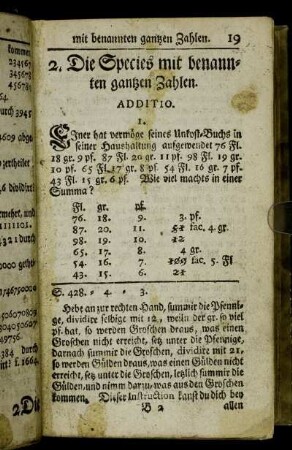 mit benannten gantzen Zahlen. 19
2. Die Species mit benann-
ten gantzen Zahlen.
ADDITIO.
1.
Einer hat vermöge seines Unkost-Buchs in
seiner Haushaltung aufgewendet 76 Fl.
18 gr. 9 pf. 87 Fl. 20 gr. 11 pf. 98 Fl. 19 gr.
10 pf. 65 Fl. 17 gr. 8 pf. 54 Fl. 16 gr. 7 pf.
43 Fl. 15 gr. 6 pf. Wie viel machts in einer
Summa?
Fl. gr. pf.
76. 18. 9. 3. pf.
87. 20. 11. 51 fac. 4. gr.
98. 19. 10. 12
65. 17. 8. 4 gr.
54. 16. 7. 109 fac. 5. Fl
43. 15. 6. 21
S. 428. - 4 - 3.
Hebt an zur rechten Hand, summir die Pfenni-
ge, dividire selbige mit 12, weiln der gr. so viel
pf. hat, so werden Groschen draus, was einen
Groschen nicht erreicht, setz unter die Pfennige,
darnach summir die Groschen, dividire mit 21,
so werden Gülden draus, was einen Gülden nicht
erreicht, setz unter die Groschen, letzlich summir die
Gülden, und nimm darzu, was aus den Groschen
kommen. Dieser Instruction kanst du dich bey
B 2 allen